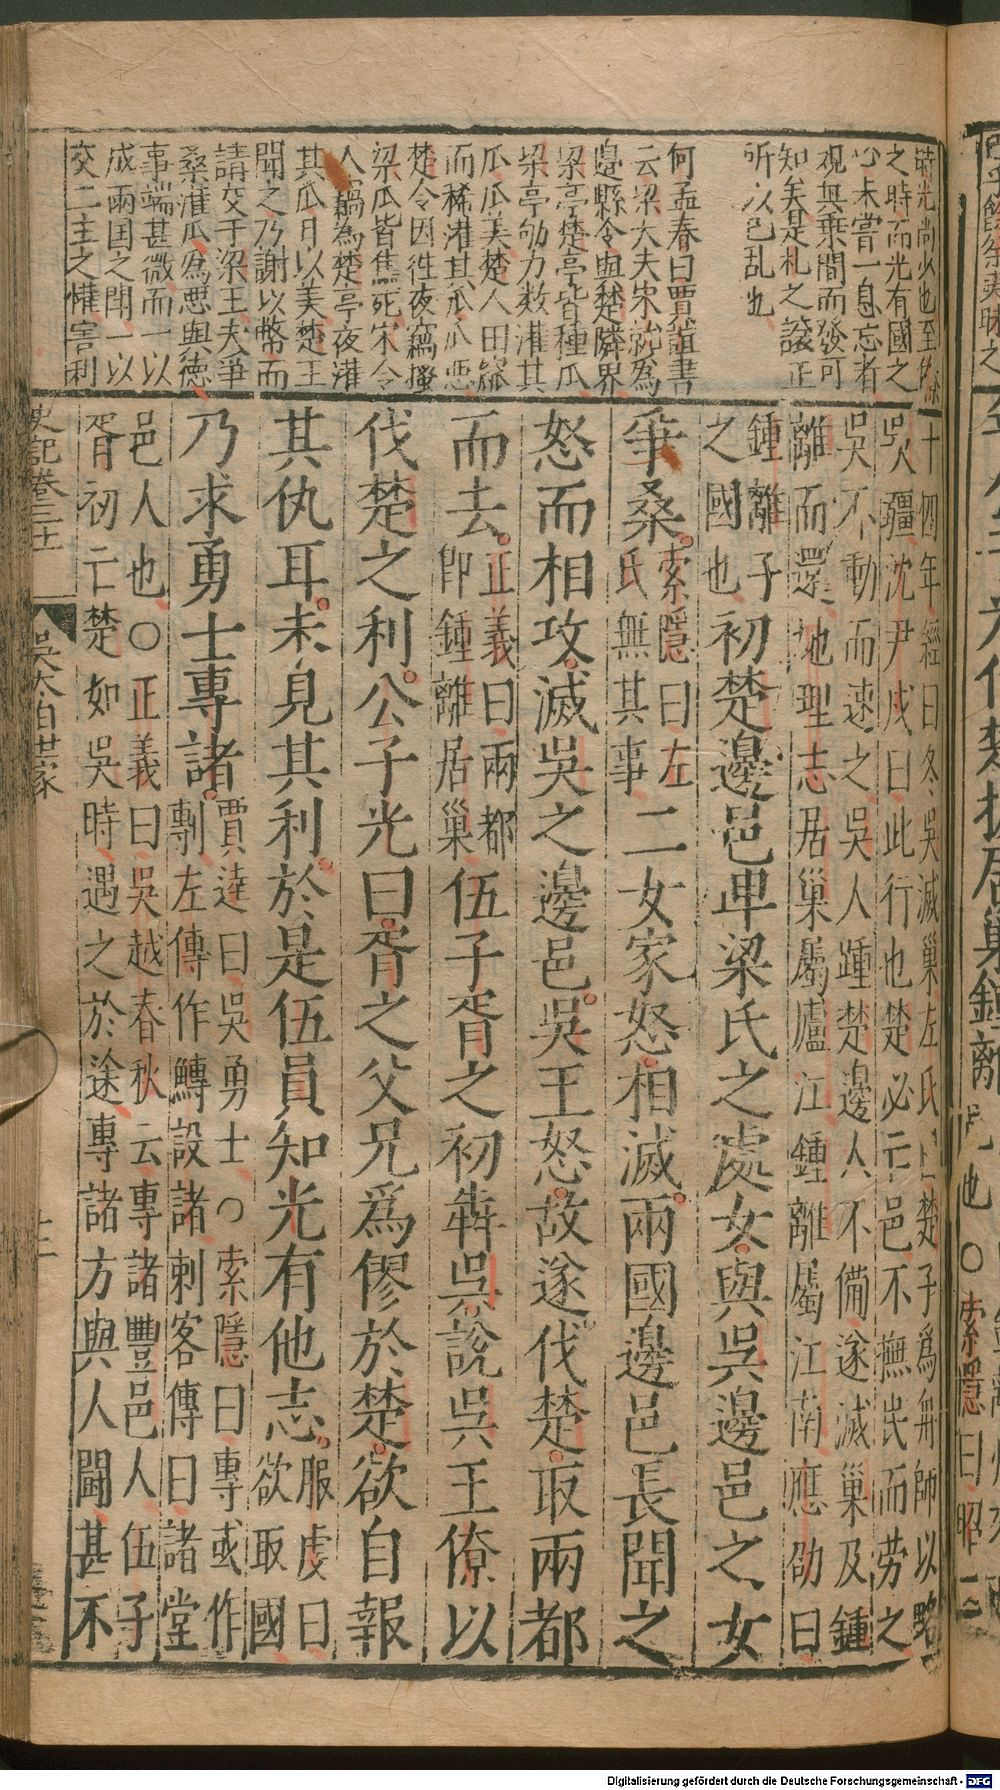 時光尚少也至餘
之時而光有國之
心未嘗一息忘者
觀其乘間而發可
知矣是札之讓正
所以啟亂也
何孟春曰賈誼書
云梁大夫宋就為
邊縣令與楚隣界
梁亭楚亭皆種瓜
梁亭劬力数灌其
瓜瓜美楚人田窳
而稀灌其瓜瓜惡
楚令因徃夜竊搔
梁瓜皆焦死宋令
人竊為楚亭夜灌
其瓜瓜日以美楚王
聞之乃謝以幣而
請交于梁王夫爭
桑灌瓜為惡與德
事端甚微而一以
成兩国之鬪一以
交二主之懽害利
十四年經曰冬吳滅巢左氏曰楚子爲舟師以略
吳疆沈尹戌曰此行也楚必亡邑不撫民而劳之
吳不動而速之吳人踵楚邊人不備遂滅巢及鍾
離而還地理志居巢屬廬江鍾離屬江南應劭曰
鍾離子
之國也
初楚邊邑卑梁氏之處女與吳邊邑之女
爭桑
索隱曰左
氏無其事
二女家怒相滅兩國邊邑長聞之
怒而相攻滅吳之邊邑吳王怒故遂伐楚取兩都
而去
正義曰兩都
即鍾離居巢
伍子胥之初犇吳說吳王僚以
伐楚之利公子光曰胥之父兄爲僇於楚欲自報
其仇耳未見其利於是伍員知光有他志
服虔曰
欲取國
乃求勇士專諸
賈逵曰吳勇士○索隱曰專或作
剸左傳作鱄設諸刺客傳曰諸堂
邑人也○正義曰吳越春秋云專諸豐邑人伍子
胥初亡楚如吳時遇之於途專諸方與人鬪甚不
史記卷三十一
吳太伯世家
十二
Digitalisierung gefördert durch die Deutsche Forschungsgemeinschaft - DFG